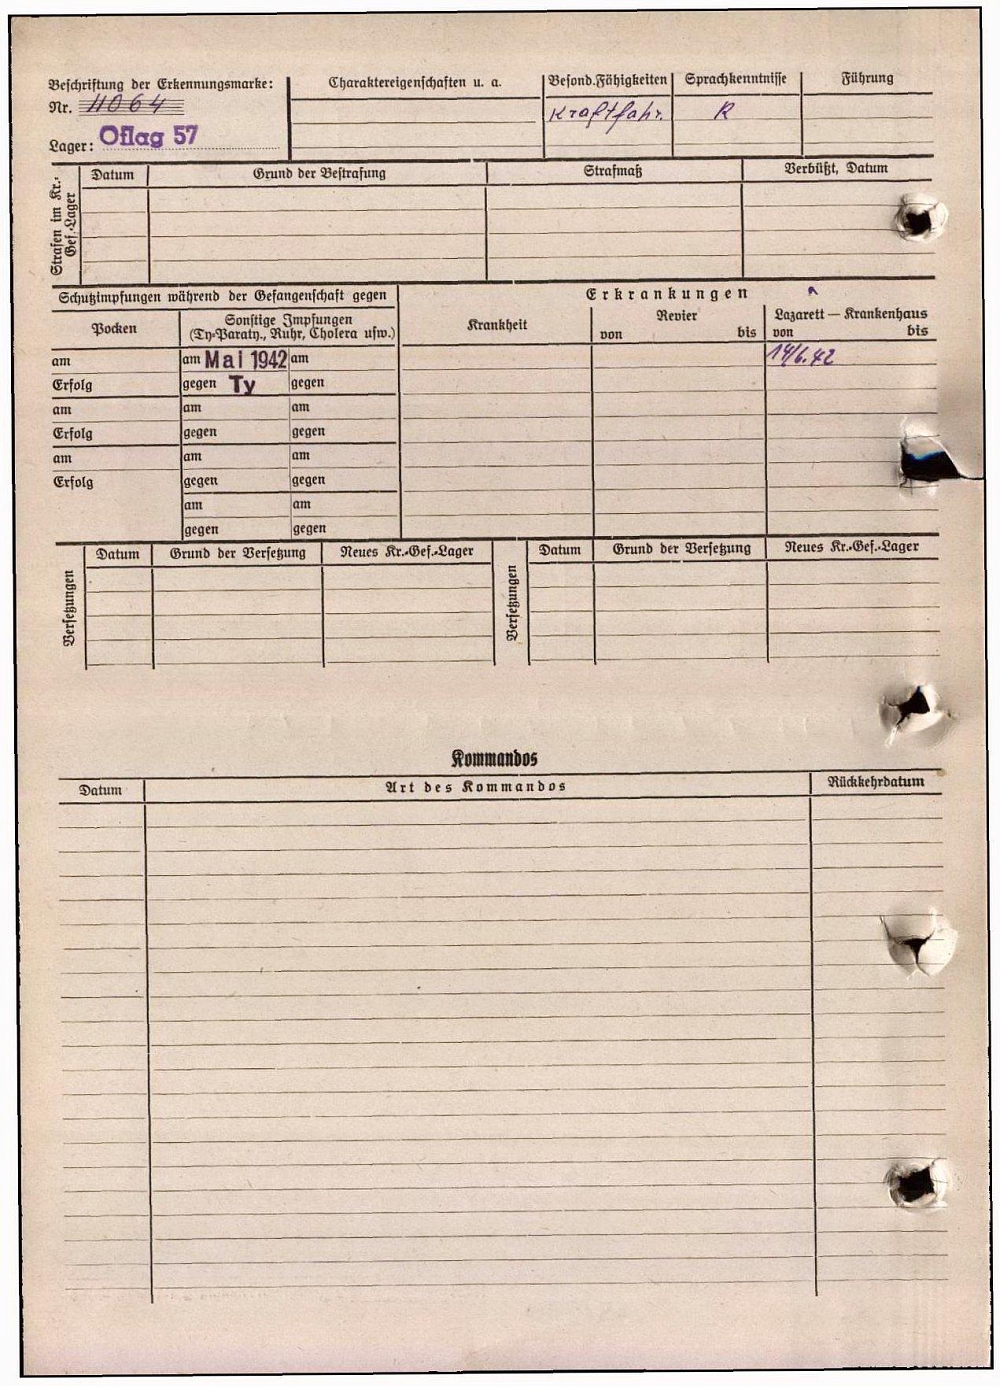 Beschriftung der Erkennungsmarke:
Nr. 4064
Lager: Oflag 57
Charaktereigenschaften u. a.
Besond. Fähigkeiten
Kraftfahr.
Sprachkenntnisse
R
Führung
Strafen im Kr.-Gef.-Lager
Datum
Grund der Bestrafung
Strafmaß
Verbüßt, Datum
Schutzimpfungen während der Gefangenschaft gegen
Pocken
Sonstige Impfungen
(Ty-Paraty., Ruhr, Cholera usw.)
am am Mai 1942 am
Erfolg gegen Ty gegen
am am am
Erfolg gegen gegen
am am am
Erfolg gegen gegen
am am
gegen gegen
Erkrankungen
Krankheit
Revier
von bis
Lazarett — Krankenhaus
von bis
14/6.42
Versetzungen
Datum
Grund der Versetzung
Neues Kr.-Gef.-Lager
Versetzungen
Datum
Grund der Versetzung
Neues Kr.-Gef.-Lager
Kommandos
Datum
Art des Kommandos
Rückkehrdatum